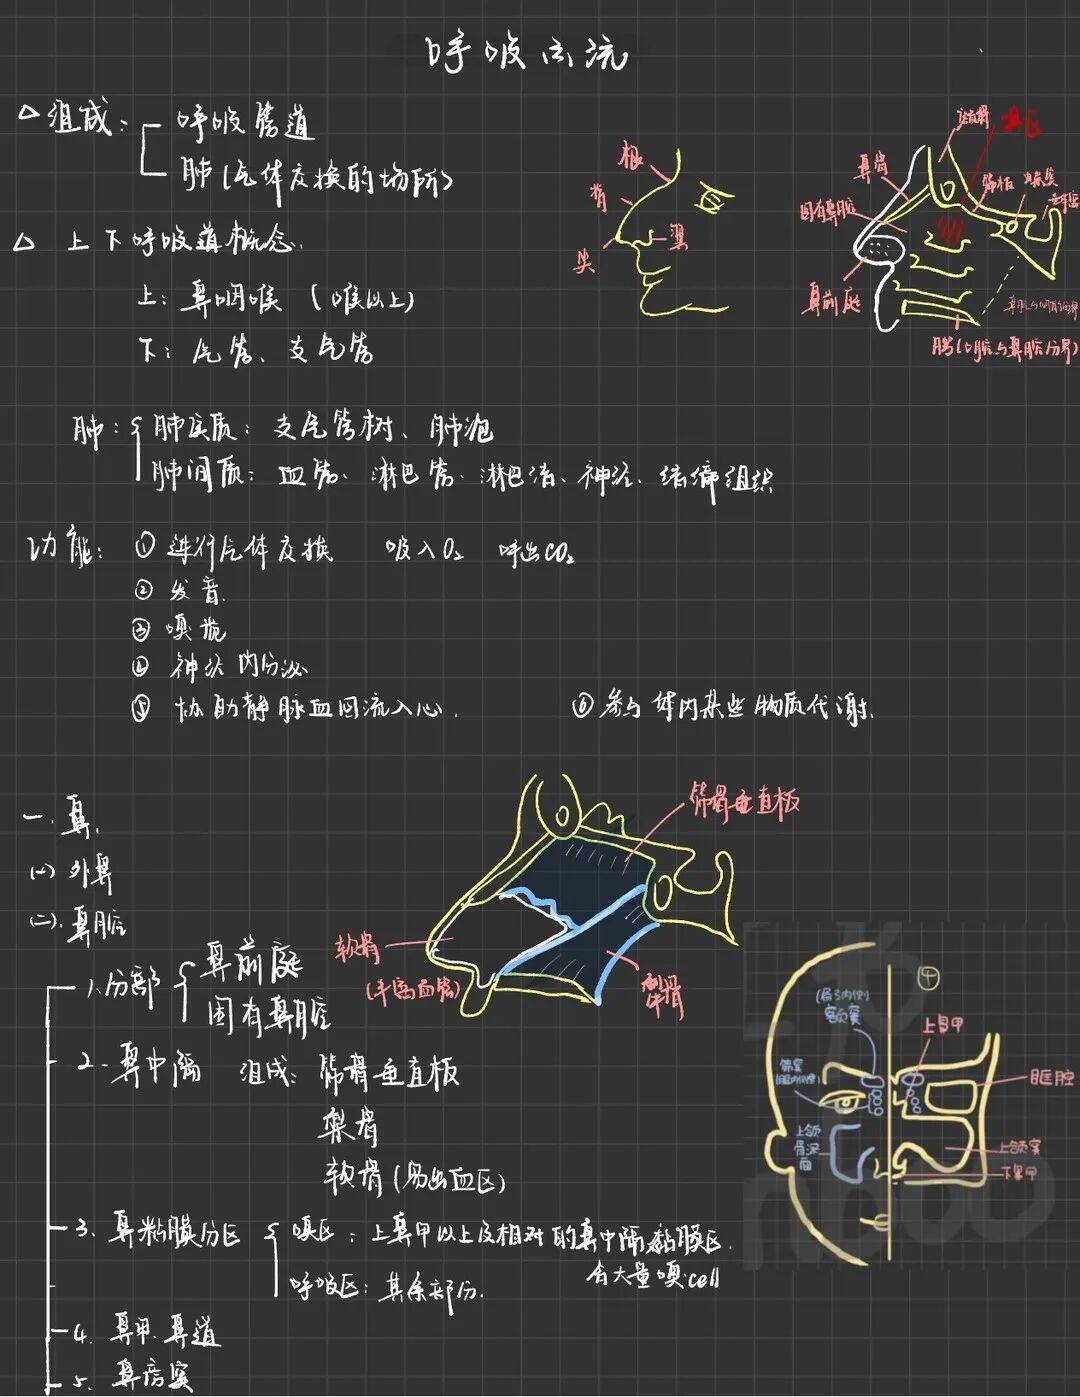 呼吸系统
△组成：呼吸管道
肺（气体交换的场所）
△ 上下呼吸道概念
上：鼻咽喉（喉以上）
下：气管、支气管
肺：肺实质：支气管树、肺泡
肺间质：血管、淋巴管、淋巴结、神经、结缔组织
功能：① 进行气体交换 吸入O₂ 呼出CO₂
② 发音
③ 嗅觉
④ 神经内分泌
⑤ 协助静脉血回流入心
⑥ 参与体内某些物质代谢
根
背
尖
翼
嗅区
鼻骨
筛板
固有鼻腔
鼻前庭
腭（口腔与鼻腔分界）
一、鼻
(一) 外鼻
(二) 鼻腔
1. 分部 鼻前庭
固有鼻腔
2. 鼻中隔 组成：筛骨垂直板
犁骨
软骨（易出血区）
3. 鼻粘膜分区 嗅区：上鼻甲以上及相对的鼻中隔黏膜区
含大量嗅cell
呼吸区：其余部分
4. 鼻甲、鼻道
5. 鼻旁窦
筛骨垂直板
软骨
犁骨
额窦
筛窦
上颌骨深面
上鼻甲
眶腔
上颌窦
下鼻甲